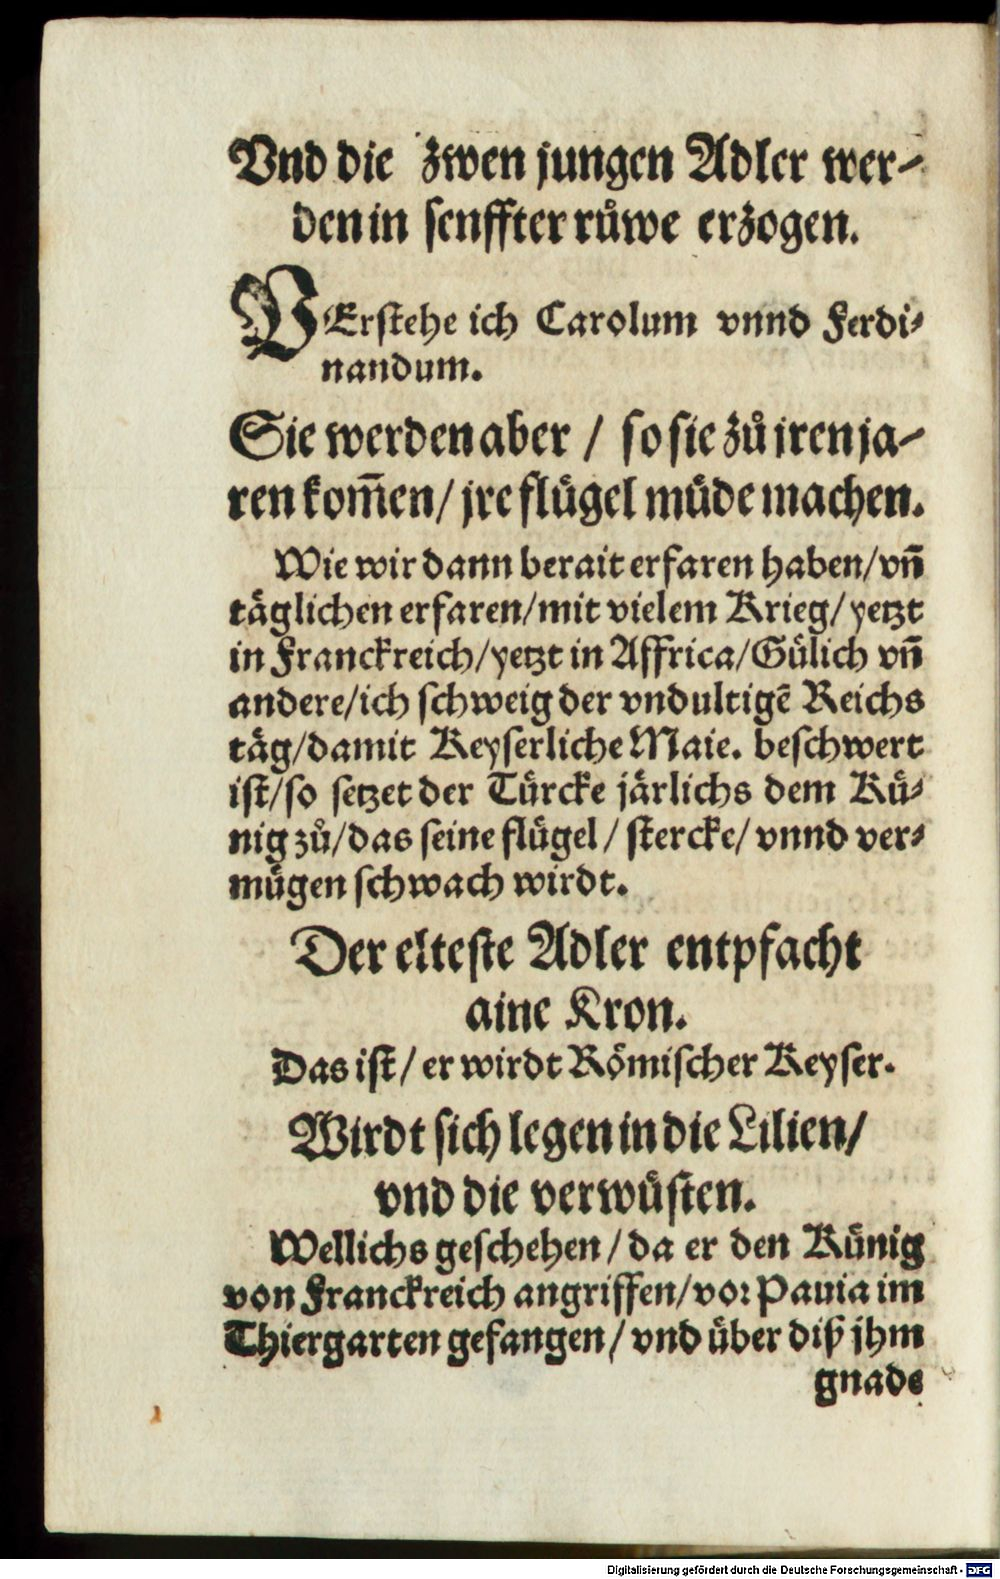 Vnd die zwen jungen Adler wer-
den in senffter růwe erzogen.
VErstehe ich Carolum vnnd Ferdi-
nandum.
Sie werden aber / so sie zů iren ja-
ren kom̃en / jre flügel müde machen.
Wie wir dann berait erfaren haben / vñ
täglichen erfaren / mit vielem Krieg / yetzt
in Franckreich / yetzt in Affrica / Gülich vñ
andere / ich schweig der vndultigẽ Reichs
täg / damit Keyserliche Maie. beschwert
ist / so setzet der Türcke järlichs dem Kü-
nig zů / das seine flügel / stercke / vnnd ver-
mügen schwach wirdt.
Der elteste Adler entpfacht
aine Kron.
Das ist / er wirdt Römischer Keyser.
Wirdt sich legen in die Lilien /
vnd die verwüsten.
Wellichs geschehen / da er den Künig
von Franckreich angriffen / vor Pauia im
Thiergarten gefangen / vnd über diß jhm
gnade
Digitalisierung gefördert durch die Deutsche Forschungsgemeinschaft - DFG